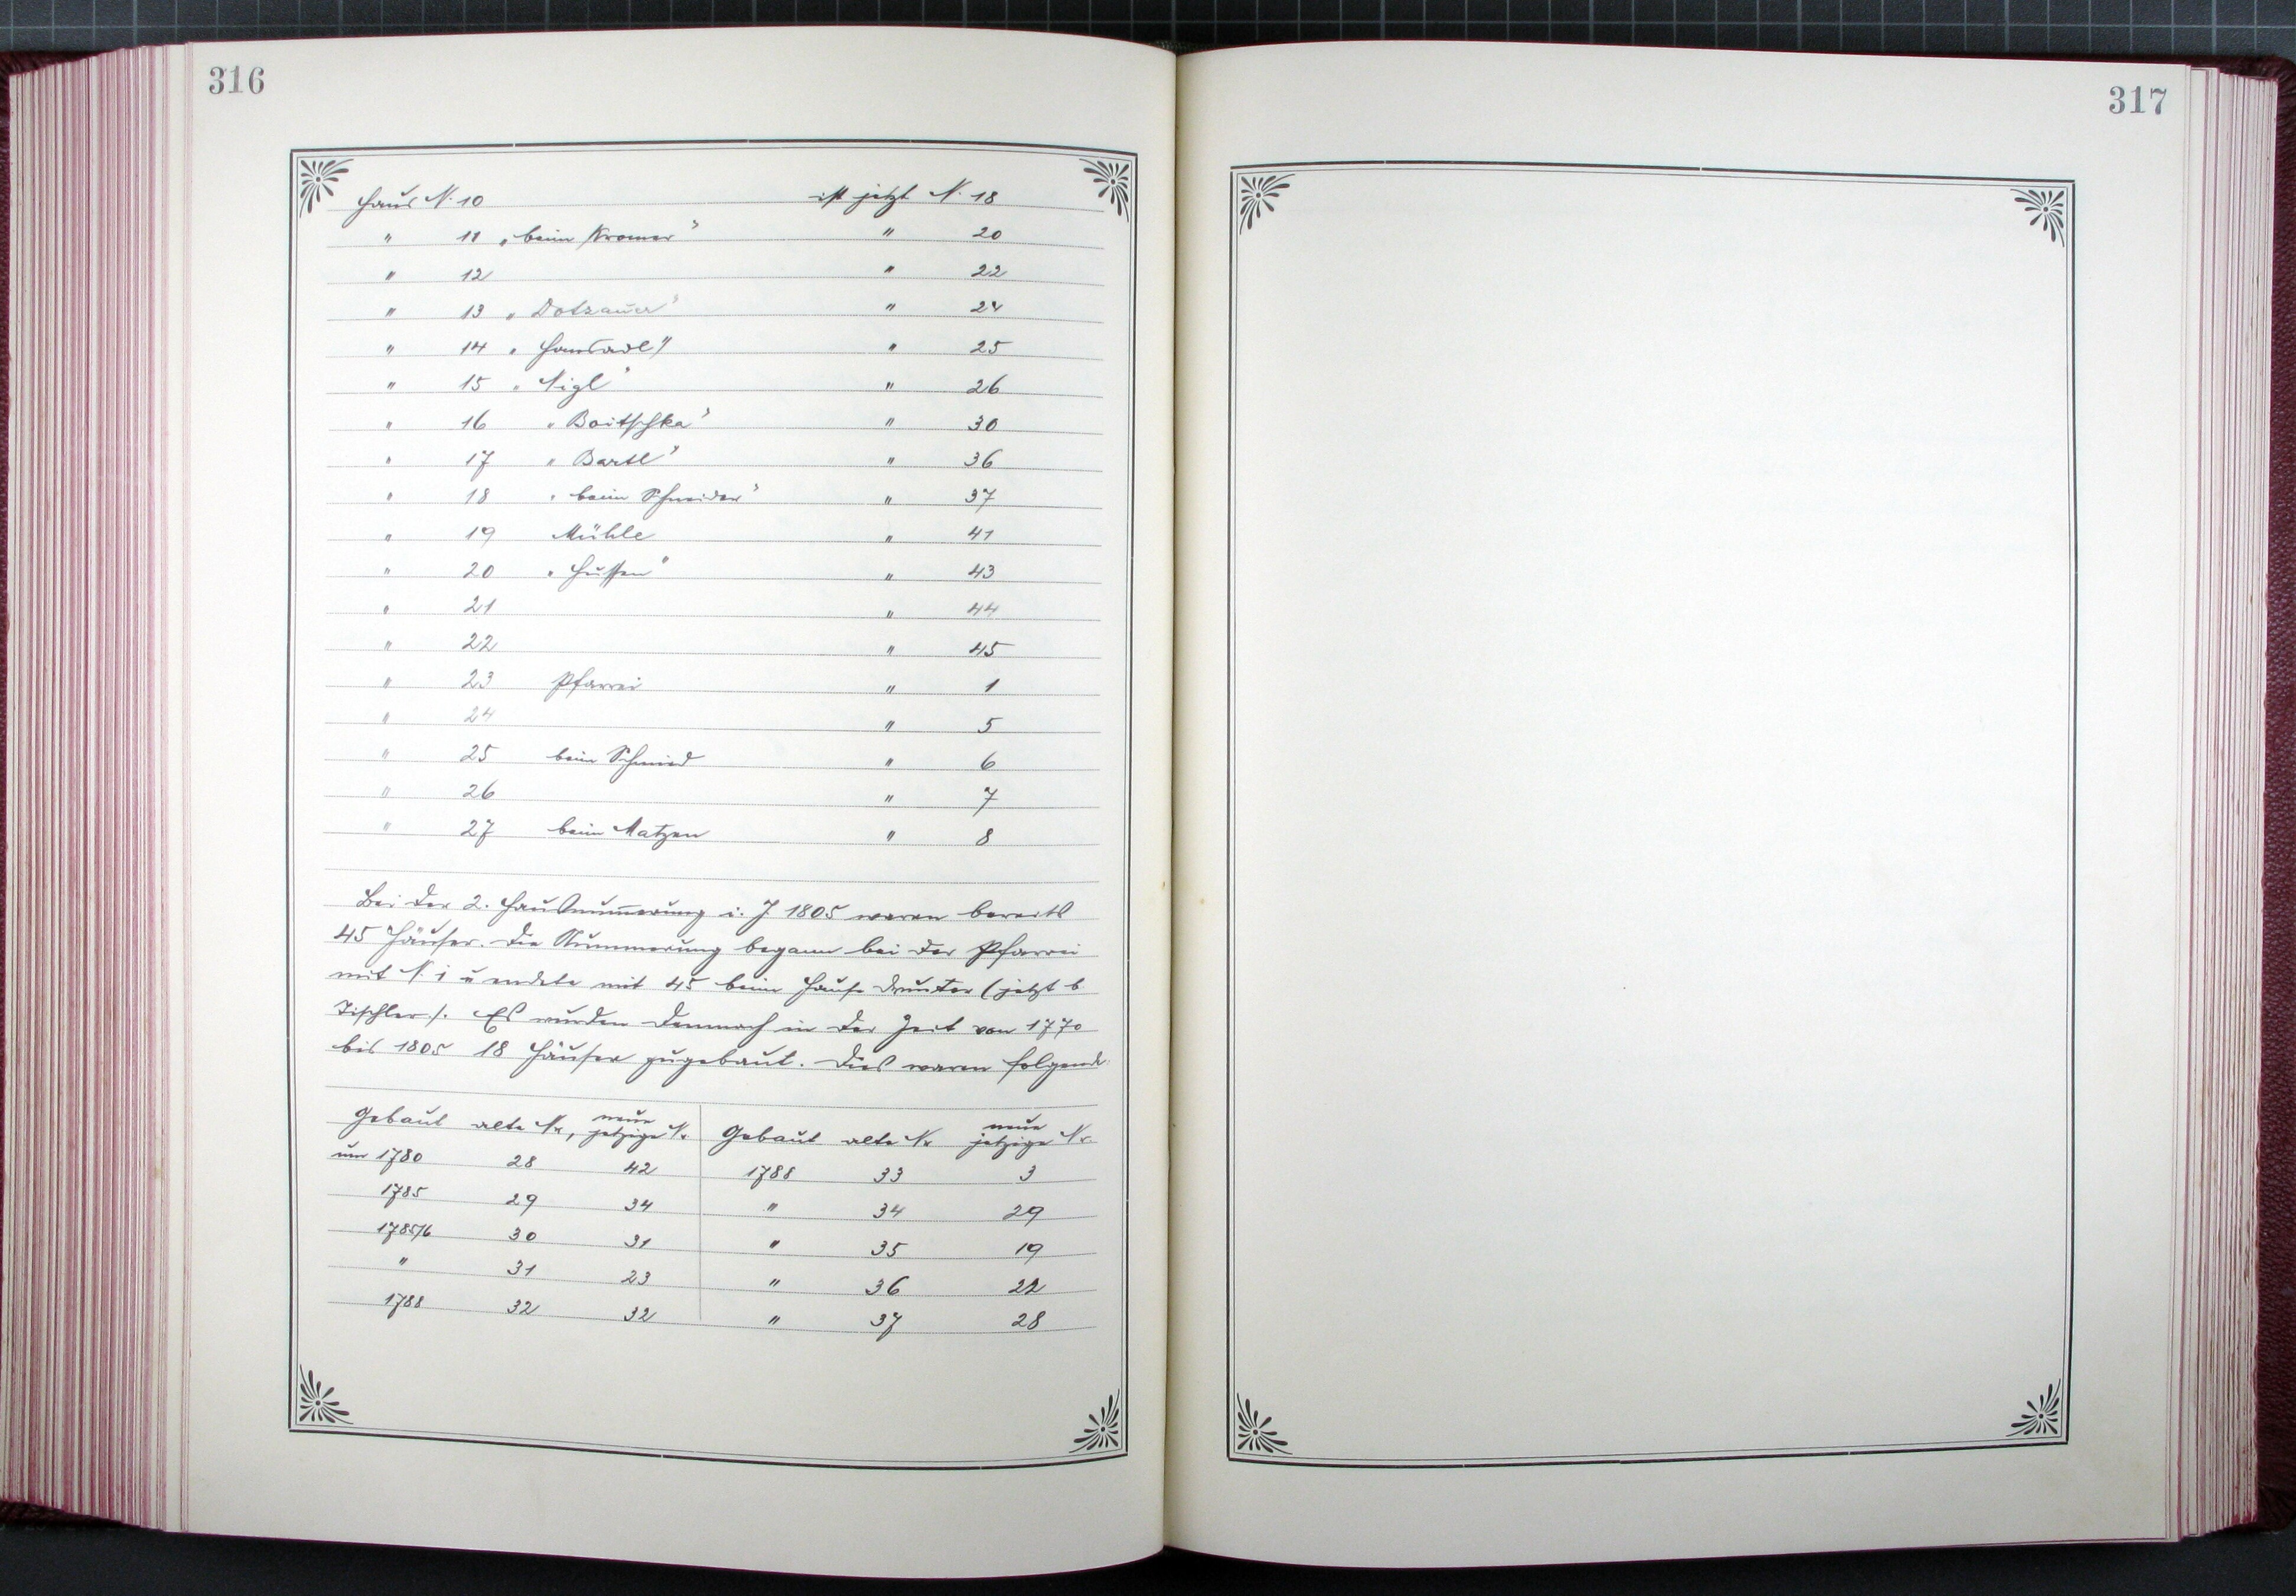 316
Haus N. 10 ist jetzt N. 18
" 11 „beim Kramer" " 20
" 12 " 22
" 13 „Dotzauer" " 24
" 14 " 25
" 15 „Nigl" " 26
" 16 „Boitschka" " 30
" 17 „Bartl" " 36
" 18 „beim Schneider" " 37
" 19 Mühle " 41
" 20 „Hussen" " 43
" 21 " 44
" 22 " 45
" 23 Pfarrei " 1
" 24 " 5
" 25 beim Schmied " 6
" 26 " 7
" 27 beim Matzen " 8
Bei der 2. Hausnum̅erung i. J. 1805 waren bereits
45 Häuser. Die Nummerung begann bei der Pfarrei
mit N. 1 u endete mit 45 beim Hause drunter (jetzt b
Tischler). Es wurden demnach in der Zeit von 1770
bis 1805 18 Häuser zugebaut. Dies waren folgende
Gebaut alte Nr, neue jetzige Nr Gebaut alte Nr neue jetzige Nr.
um 1780 28 42 1788 33 3
1785 29 34 " 34 29
1785/6 30 31 " 35 19
" 31 23 " 36 22
1788 32 32 " 37 28
317